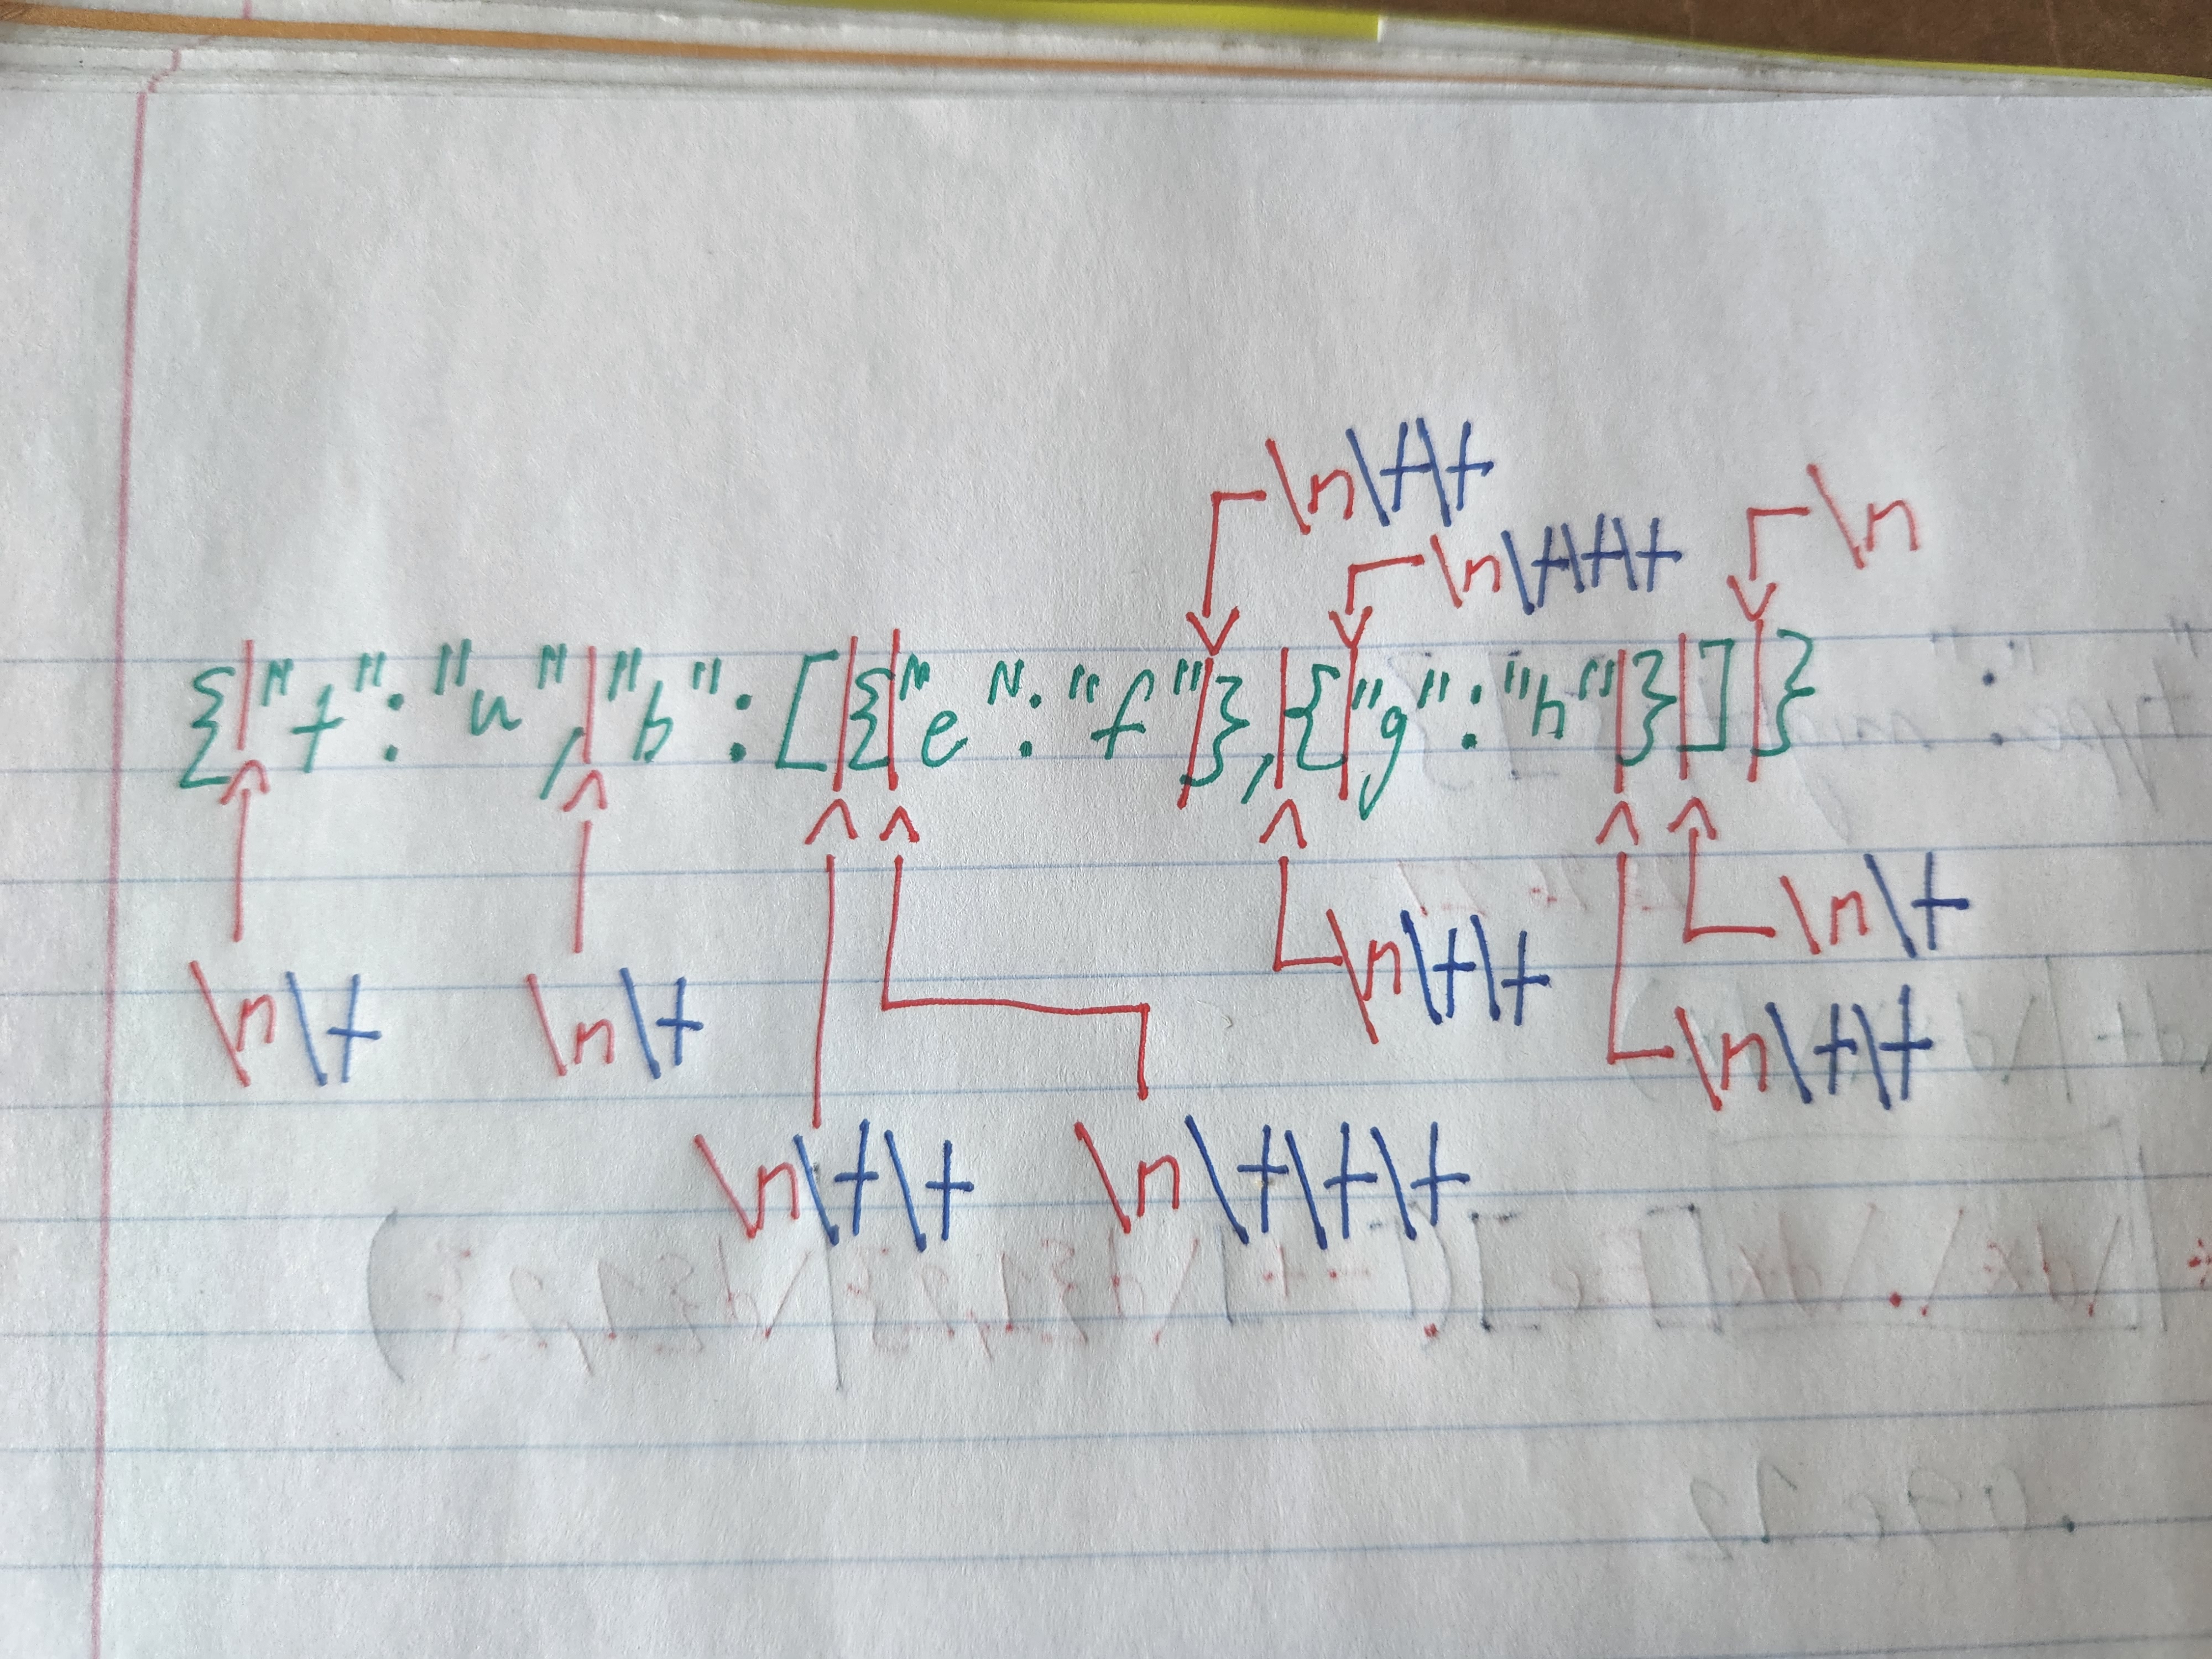 \n\t\t
\n\t\t\t
\n
{"t":"u","b":[{"e":"f"},{"g":"h"}]}
\n\t
\n\t
\n\t\t
\n\t
\n\t\t
\n\t\t
\n\t\t\t